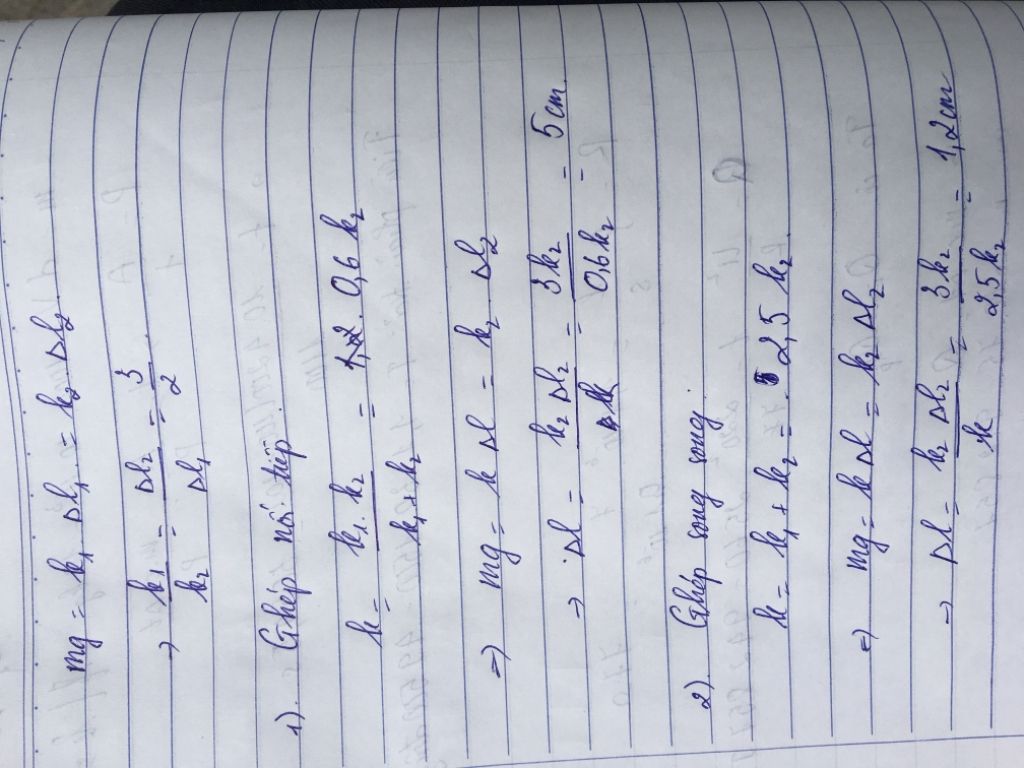 mg = k₁ Δl₁ = k₂ . Δl₂
→ k₁/k₂ = Δl₂/Δl₁ = 3/2
1). Ghép nối tiếp.
k = k₁.k₂/(k₁+k₂) = 0,6 k₂
⇒) mg = k Δl = k₂ . Δl₂
→ Δl = k₂ Δl₂/k = 3k₂/0,6k₂ = 5cm.
2) Ghép song song.
k = k₁ + k₂ = 2,5 k₂.
⇒) mg = k Δl = k₂ Δl₂
→ Δl = k₂ Δl₂/k = 3k₂/2,5k₂ = 1,2cm